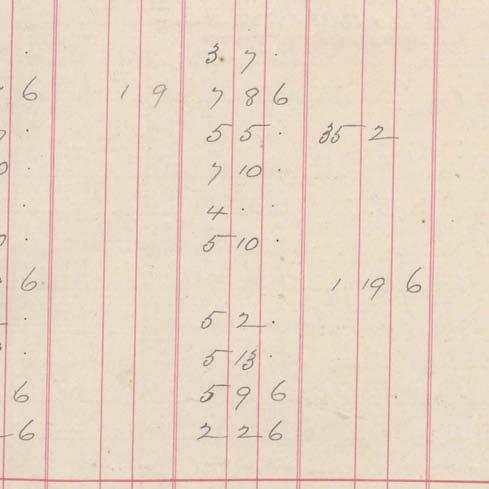 · 3 7 ·
6 1 9 7 8 6
· 5 5 · 35 2
· 7 10 ·
· 4 · ·
· 5 10 ·
6 1 19 6
· 5 2 ·
· 5 13 ·
6 5 9 6
6 2 2 6